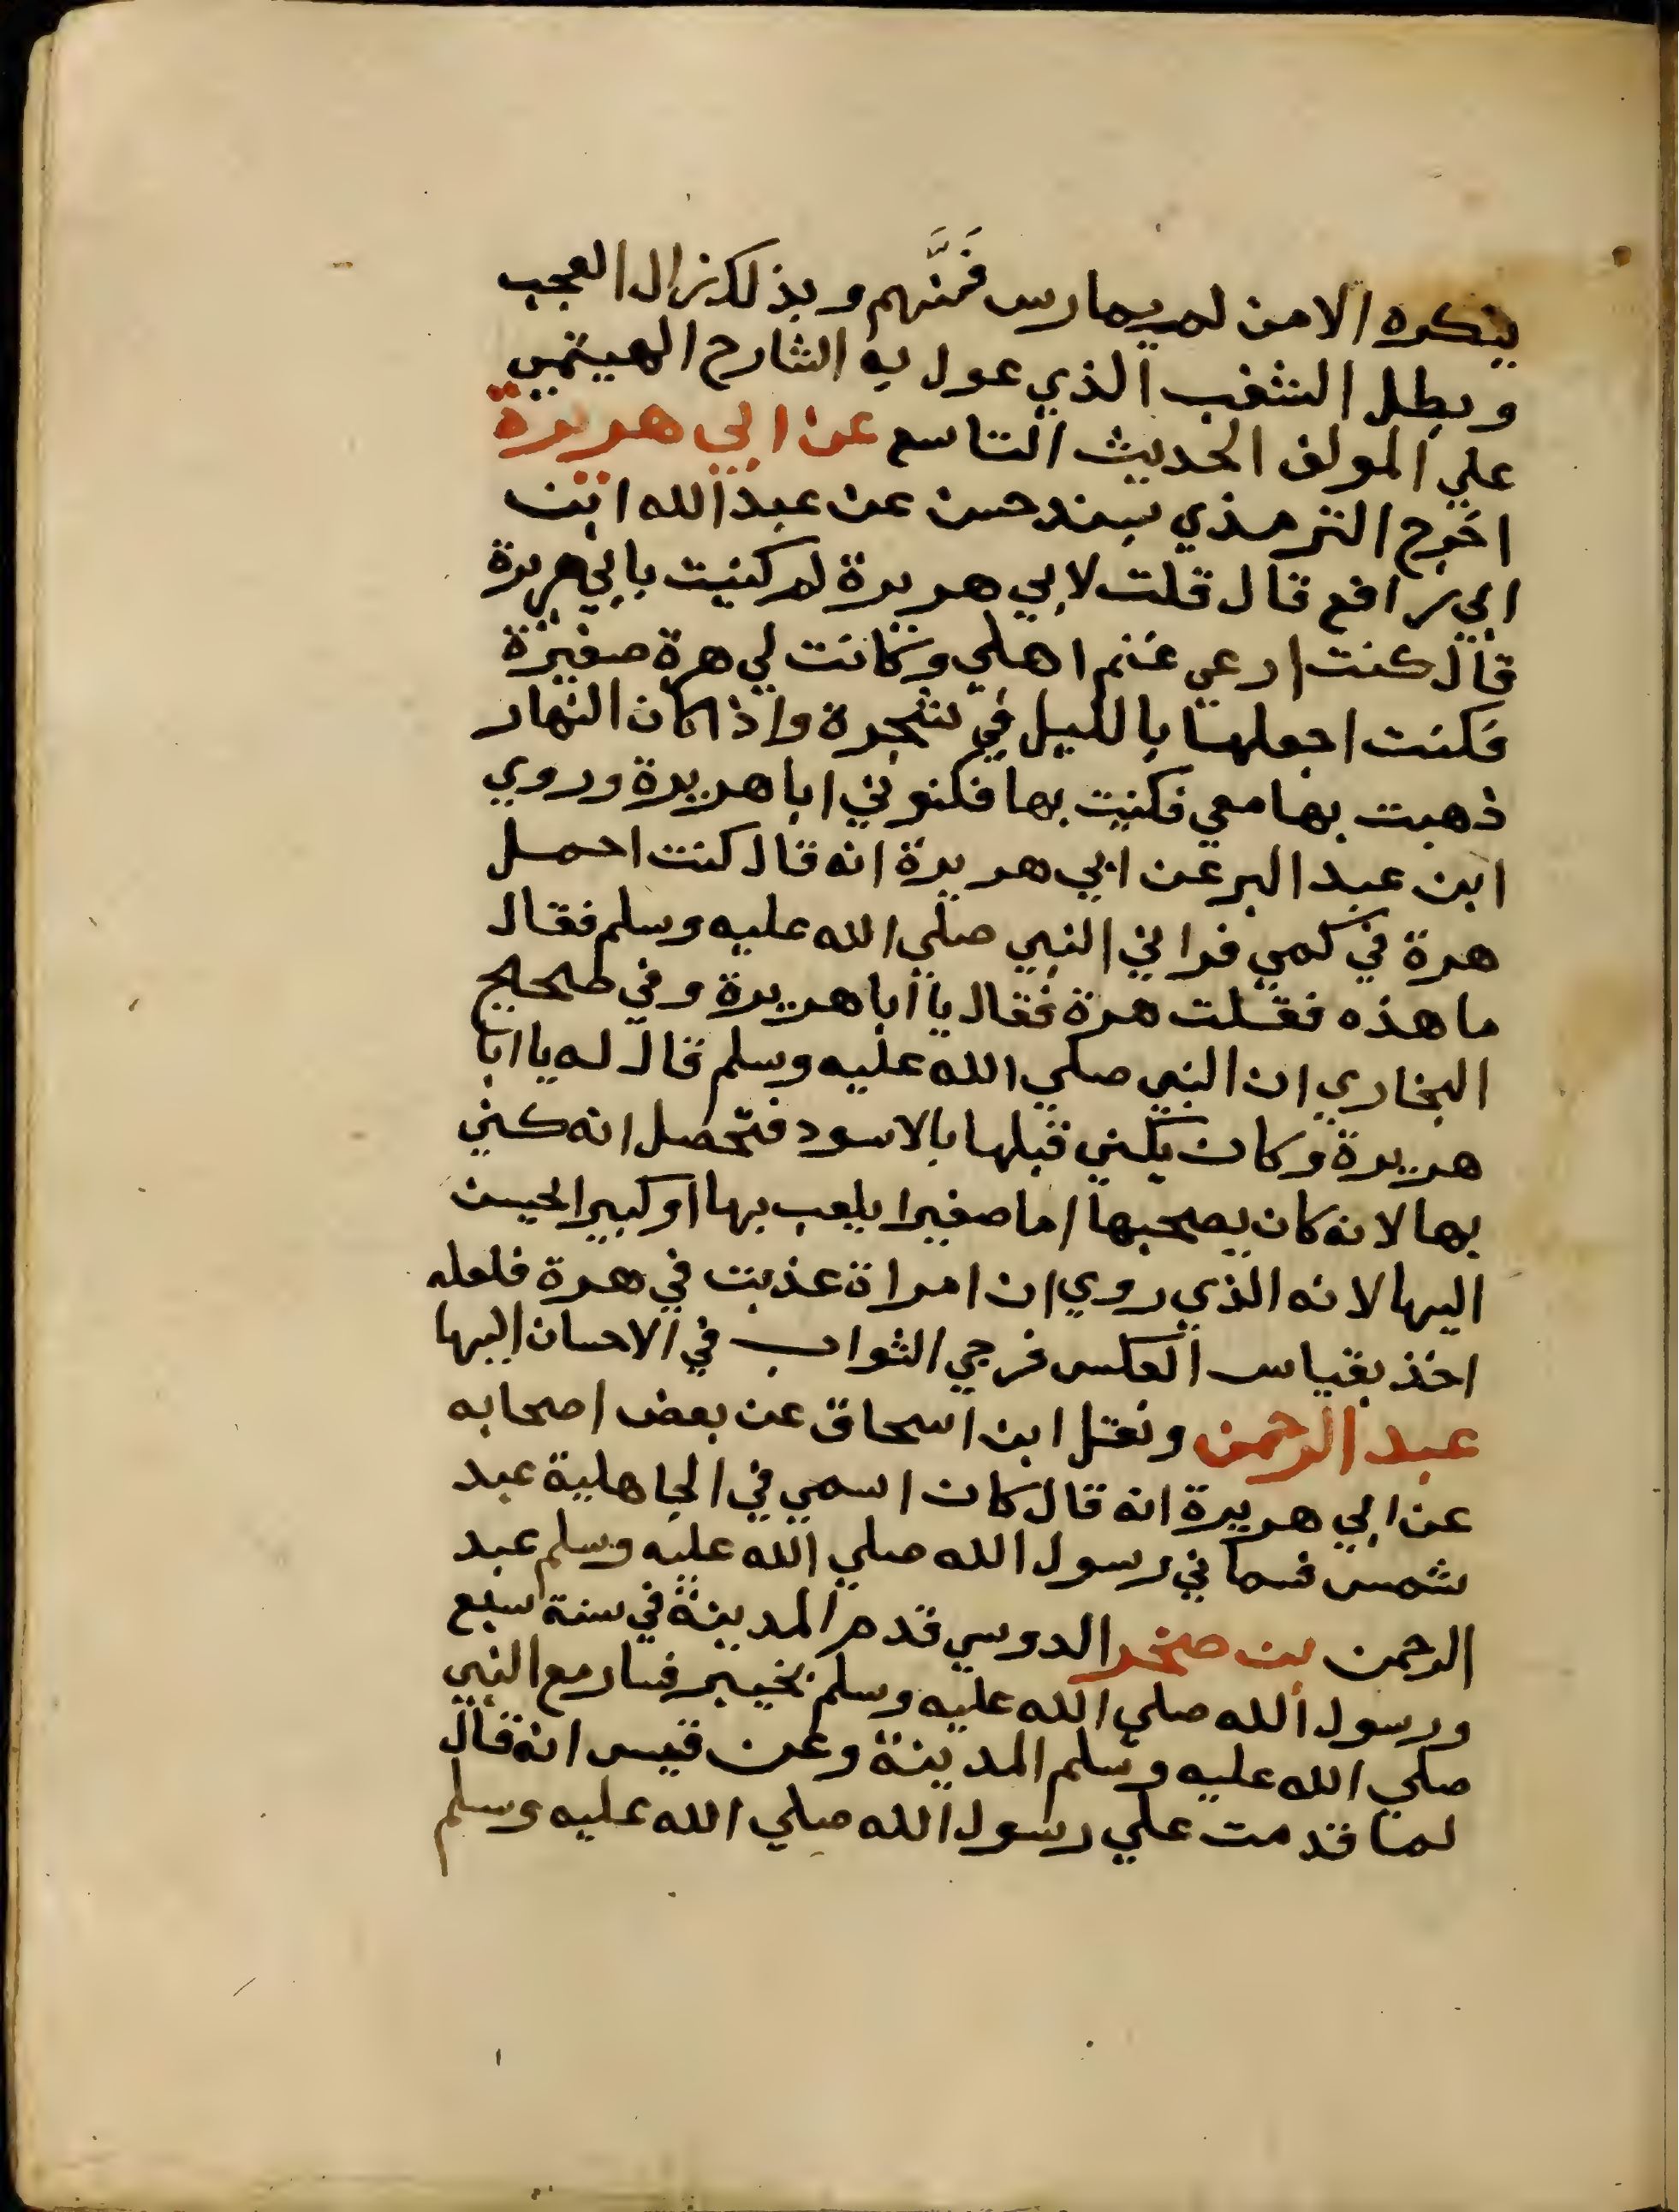 ينكره الا من لم يمارس فَنَّهم وبذلك زال العجب
وبطل الشغب الذي عول به الشارح الهيتمي
علي المولف الحديث التاسع عن ابي هريرة
اخرج الترمذي بسند حسن عن عبد الله ابن
ابي رافع قال قلت لابي هريرة لم كنيت بابي هريرة
قال كنت ارعي غنم اهلي وكانت لي هرة صغيرة
فكنت اجعلها بالليل في شجرة واذا كان النهار
ذهبت بها معي فكنيت بها فكنوني ابا هريرة وروي
ابن عبد البر عن ابي هريرة انه قال كنت احمل
هرة في كمي فراني النبي صلي الله عليه وسلم فقال
ما هذه فقلت هرة فقال يا ابا هريرة وفي صحيح
البخاري ان النبي صلي الله عليه وسلم قال له يا ابا
هريرة وكان يكني قبلها بالاسود فتحصل انه كني
بها لانه كان يصحبها اما صغيرا يلعب بها او كبيرا لحيسن
اليها لانه الذي روي ان امراة عذبت في هرة فلعله
اخذ بقياس العكس فرجي الثواب في الاحسان اليها
عبد الرحمن ونقل ابن اسحاق عن بعض اصحابه
عن ابي هريرة انه قال كان اسمي في الجاهلية عبد
شمس فسماني رسول الله صلي الله عليه وسلم عبد
الرحمن بن صخر الدوسي قدم المدينة في سنة سبع
ورسول الله صلي الله عليه وسلم بخيبر فسار مع النبي
صلي الله عليه وسلم المدينة وعن قيس انه قال
لما قدمت علي رسول الله صلي الله عليه وسلم